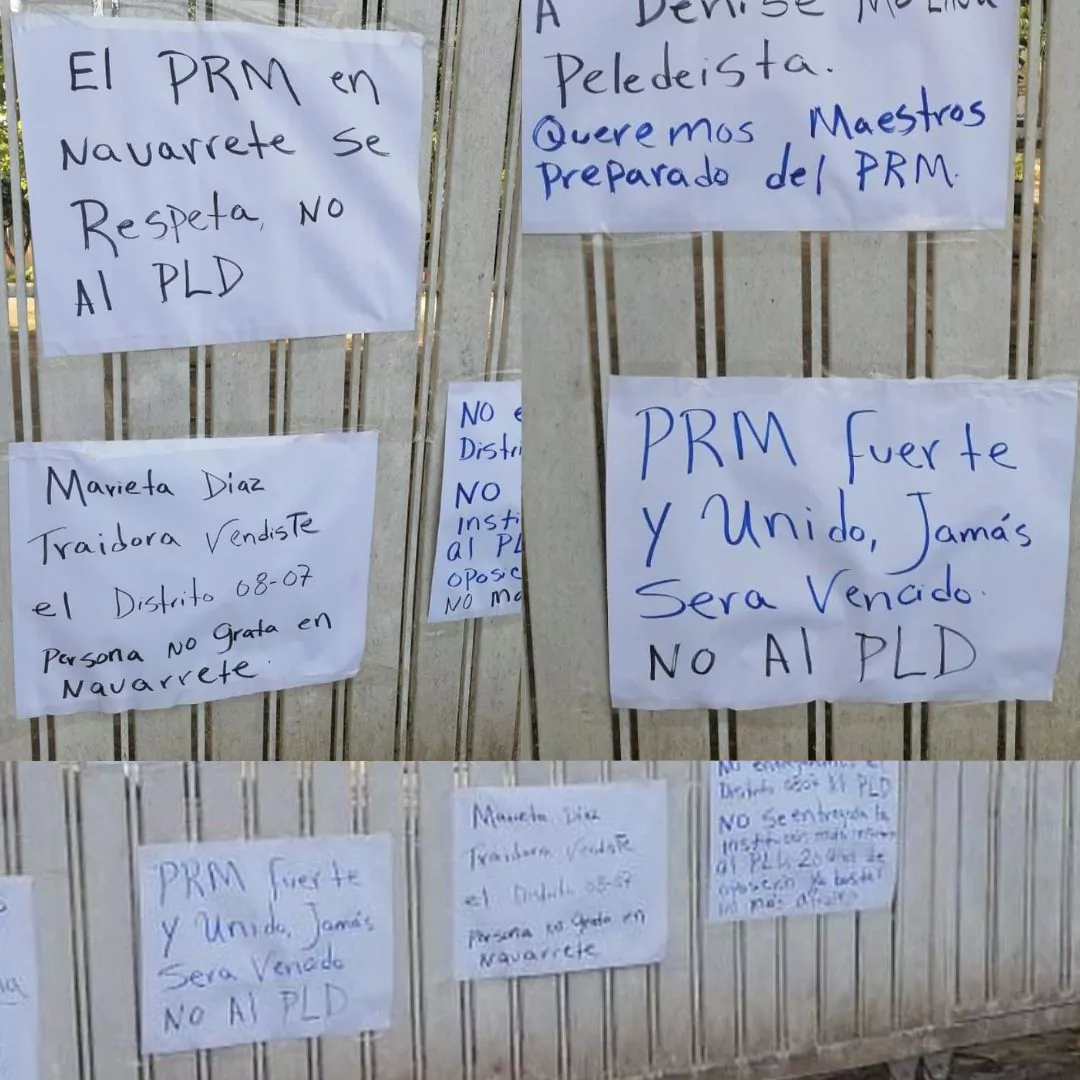 El PRM en
Navarrete se
Respeta, NO
Al PLD
Marieta Diaz
Traidora Vendiste
el Distrito 08-07
Persona no grata en
Navarrete.
NO
Distri
NO
insti
al PL
oposic
NO ma
A Denise Molina
Peledeista.
Queremos Maestros
preparado del PRM.
PRM fuerte
y Unido, Jamás
Sera Vencido.
NO Al PLD
PRM fuerte
y Unido, Jamás
Sera Vencido
NO Al PLD
Marieta Diaz
Traidora Vendiste
el Distrito 08-07
Persona no grata en
Navarrete
Distrito 0807 Al PLD
NO se entregada la
institución mas
al PLD 20 años de
oposición ya basta!
no más